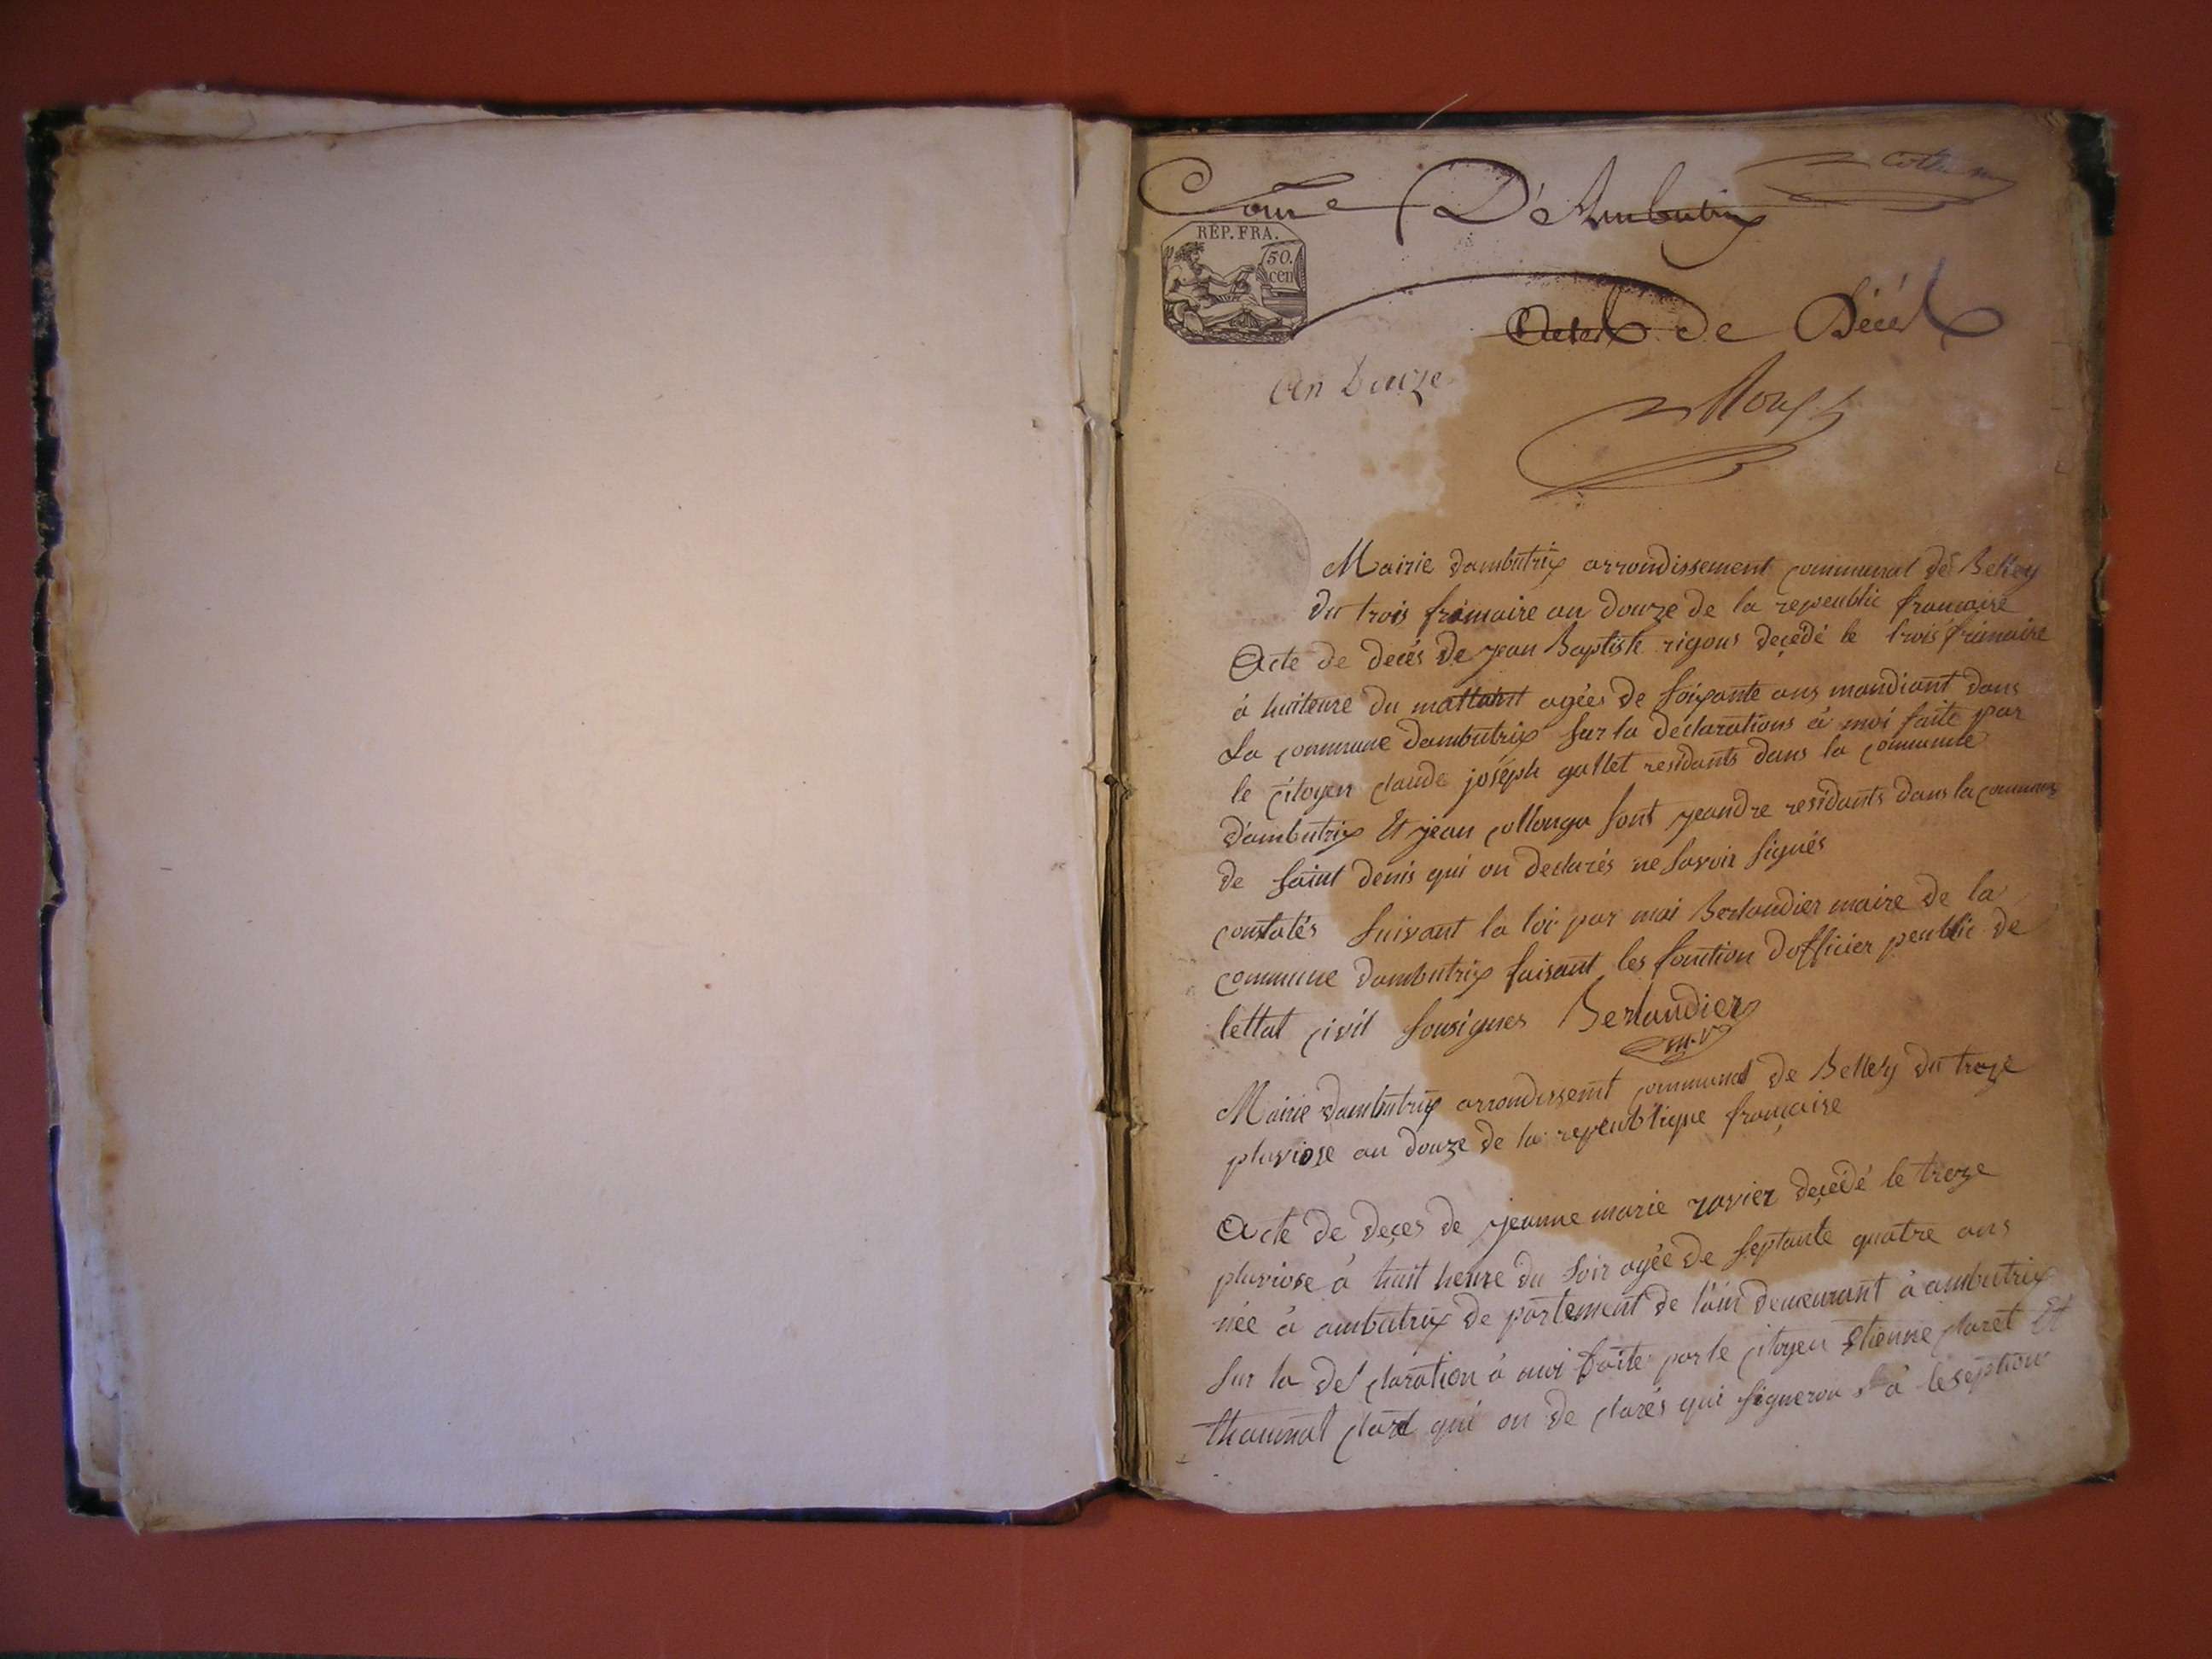 Come D'Ambutrix
REP. FRA.
50.
cen
Actes de Décés
an Douze
Mairie dambutrix arrondissement communal de Belley
du trois frimaire an douze de la repeublic francaise
Acte de decés de jean Baptiste rigous decédé le trois frimaire
à huiteure du mattant agées de soixante ans mandiant dans
La commune dambutrix sur la declarations à moi faite par
le citoyen claude joséph gallet residants dans la commune
d'ambutrix Et jean collonga sont jeandre residants dans la commune
de saint denis qui on declarés ne savoir signés
constatés suivant la loi par moi Berlandier maire de la
commune dambutrix faisant les fontion dofficier peublic de
lettat civil sousignes Berlandier
Mairie dambutrix arrondissemt communal de Belley du treze
pluviose an douze de la repeublique française
Acte de deçes de jeanne marie ravier deçédé le treze
pluviose à huit heure du soir agée de septante quatre ans
née à ambutrix de partement de l'ain demeurant à ambutrix
sur la de claration à moi faite par le citoyen Etienne claret Et
claret qui on de clarés qui signeron